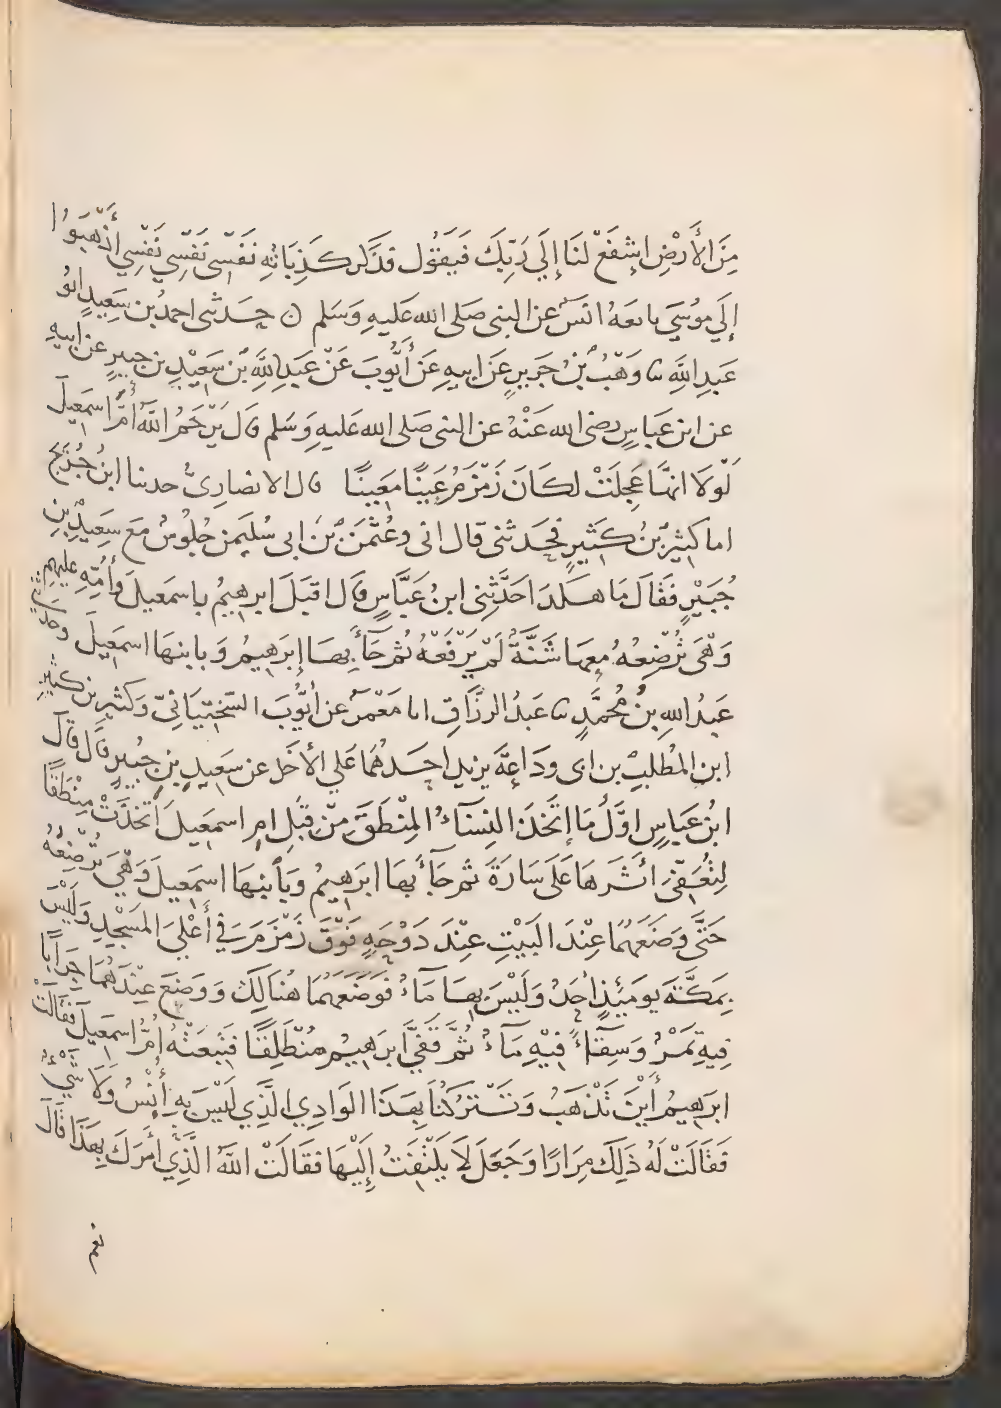 مِنَ الأَرْضِ اِشفَعْ لَنَا إِلَي رَبِّكَ فَيَقُول فَذَكَر كَذِبَاتِهِ نَفسِي نَفسِي نَفسِي أذْهَبُوا
إلَي مُوسَي تابعَهُ انسٌ عن النبى صَلى الله عَليهِ وَسَلم ن حَدثنى احمدُ بن سَعِيدٍ ابُو
عَبدِ اللهِ نا وَهْبُ بْنُ جَرِيرٍ عَن ابيهِ عَن أَيُّوبَ عَنْ عَبدِ اللَّهِ بْن سَعِيْدِ بن جبيرٍ عن ابيهِ
عن ابن عَباسٍ رضى الله عَنْهُ عن النبى صَلى الله عَليهِ وَسَلم قال يَرْحَمُ اللهُ أُمَّ اسمَعِيلَ
لَوْلَا انهَّا عَجِلَتْ لكَانَ زَمْزَمُ عَيْنًا مَعِينًا قال الانصَارِىُّ حدثنا ابنُ جُرَيجٍ
اما كثِيْرُ بْنُ كَثِيرٍ فَحَدثنى قال انى وعُثمٰنَ بْنَ ابى سُليمٰن جُلُوسٌ مَعَ سَعِيْدِ بنِ
جُبَيْرٍ فَقَالَ مَا هكَذَا حَدَّثَنِى ابنُ عَبَّاسٍ قال اقبَلَ ابرهِيمُ باِسمَعِيلَ وأُمِّهِ عليهم
وَهْىَ تُرْضِعُهُ مَعهَا شَنَّةٌ لَمْ يَرْفَعْهُ ثُمَّ جَآءَ بِهَا إِبرَهِيمُ وَبِابنِهَا اسمَعِيلَ وحدثنى
عَبدُ اللهِ بنُ مُحَمَّدٍ نا عَبدُ الرزَّاقِ انا مَعْمَرٌ عن أَيُّوبَ السّخْتِيَانِيِّ وَكثِيرِ بن كثِيرِ
ابنِ المُطلِبِ بن ابى وَدَاعَةَ يزيد احَدُهُمَا عَلي الأخَر عن سَعِيدِ بنِ جُبيرٍ قال قال
ابنُ عَبَاسٍ اوَّلُ مَا إتَّخَذَ النِسَآءُ المِنْطَقَ مِنْ قِبَلِ امِ اسمَعِيلَ اتَّخَذَتْ مِنْطَقًا
لِتُعَفّىَ اثَرَهَا عَلَى سَارَةَ ثم جَآءَ بهَا ابرَهِيمُ وَبِابْنِهَا اسمَعِيلَ وَهْيَ تُرْضِعُهُ
حَتَّى وَضَعَهُمَا عِنْدَ البَيْتِ عِنْدَ دَوْحَةٍ فَوْقَ زَمْزَمَ فِي أَعْلَي المَسْجِدِ وَلَيْسَ
بِمَكَّةَ يَومَئِذٍ أحَدٌ وَلَيْسَ بِهَا مَآءٌ فَوَضَعَهُمَا هُنَالِكَ وَوَضَعَ عِنْدَهُمَا جِرَابًا
فِيهِ تَمْرٌ وَسِقَآءً فِيْهِ مَآءٌ ثُمَّ قَفَّيَ ابرَهِيمُ مُنْطَلِقًا فَتَبِعَتْهُ أُمُّ اسمَعِيلَ فَقَالَتْ
ابرَهِيمُ أَيْنَ تَذْهَبُ وَتَتْرُكُنَا بِهَذَا الوَادِي الَّذِي لَيْسَ بِهِ أَنِيْسٌ وَلَا شَيْءٌ
فَقَالَتْ لَهُ ذَلِكَ مِرَارًا وَجَعَلَ لَا يَلْتَفِتُ إِلَيْهَا فَقَالَتْ اللهُ الَّذِي أَمَرَكَ بِهَذَا قَالَ
نعم